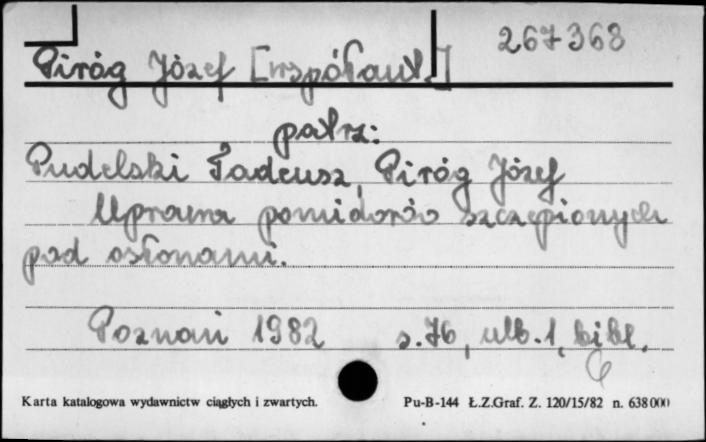 267368
Piróg Józef [współaut.]
patrz:
Pudelski Tadeusz, Piróg Józef
Uprawa pomidorów szczepionych
pod osłonami.
Poznań 1982 s. 76, ulb. 1, bibl.
Karta katalogowa wydawnictw ciągłych i zwartych. Pu-B-144 Ł.Z.Graf. Z. 120/15/82 n. 638000